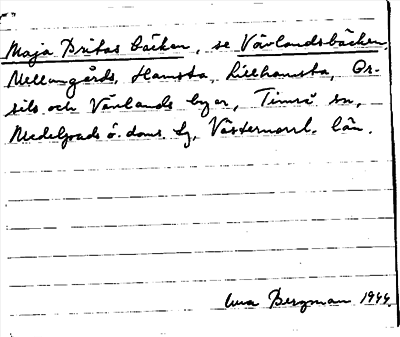 Maja Britas bäcken, se Vävlandsbäcken,
Mellangårds, Hamsta, Lillhamsta, Or-
sils och Vävlands byar, Timrå sn,
Medelpads ö. doms. tg, Västernorrl. län.
Bergman 1944.